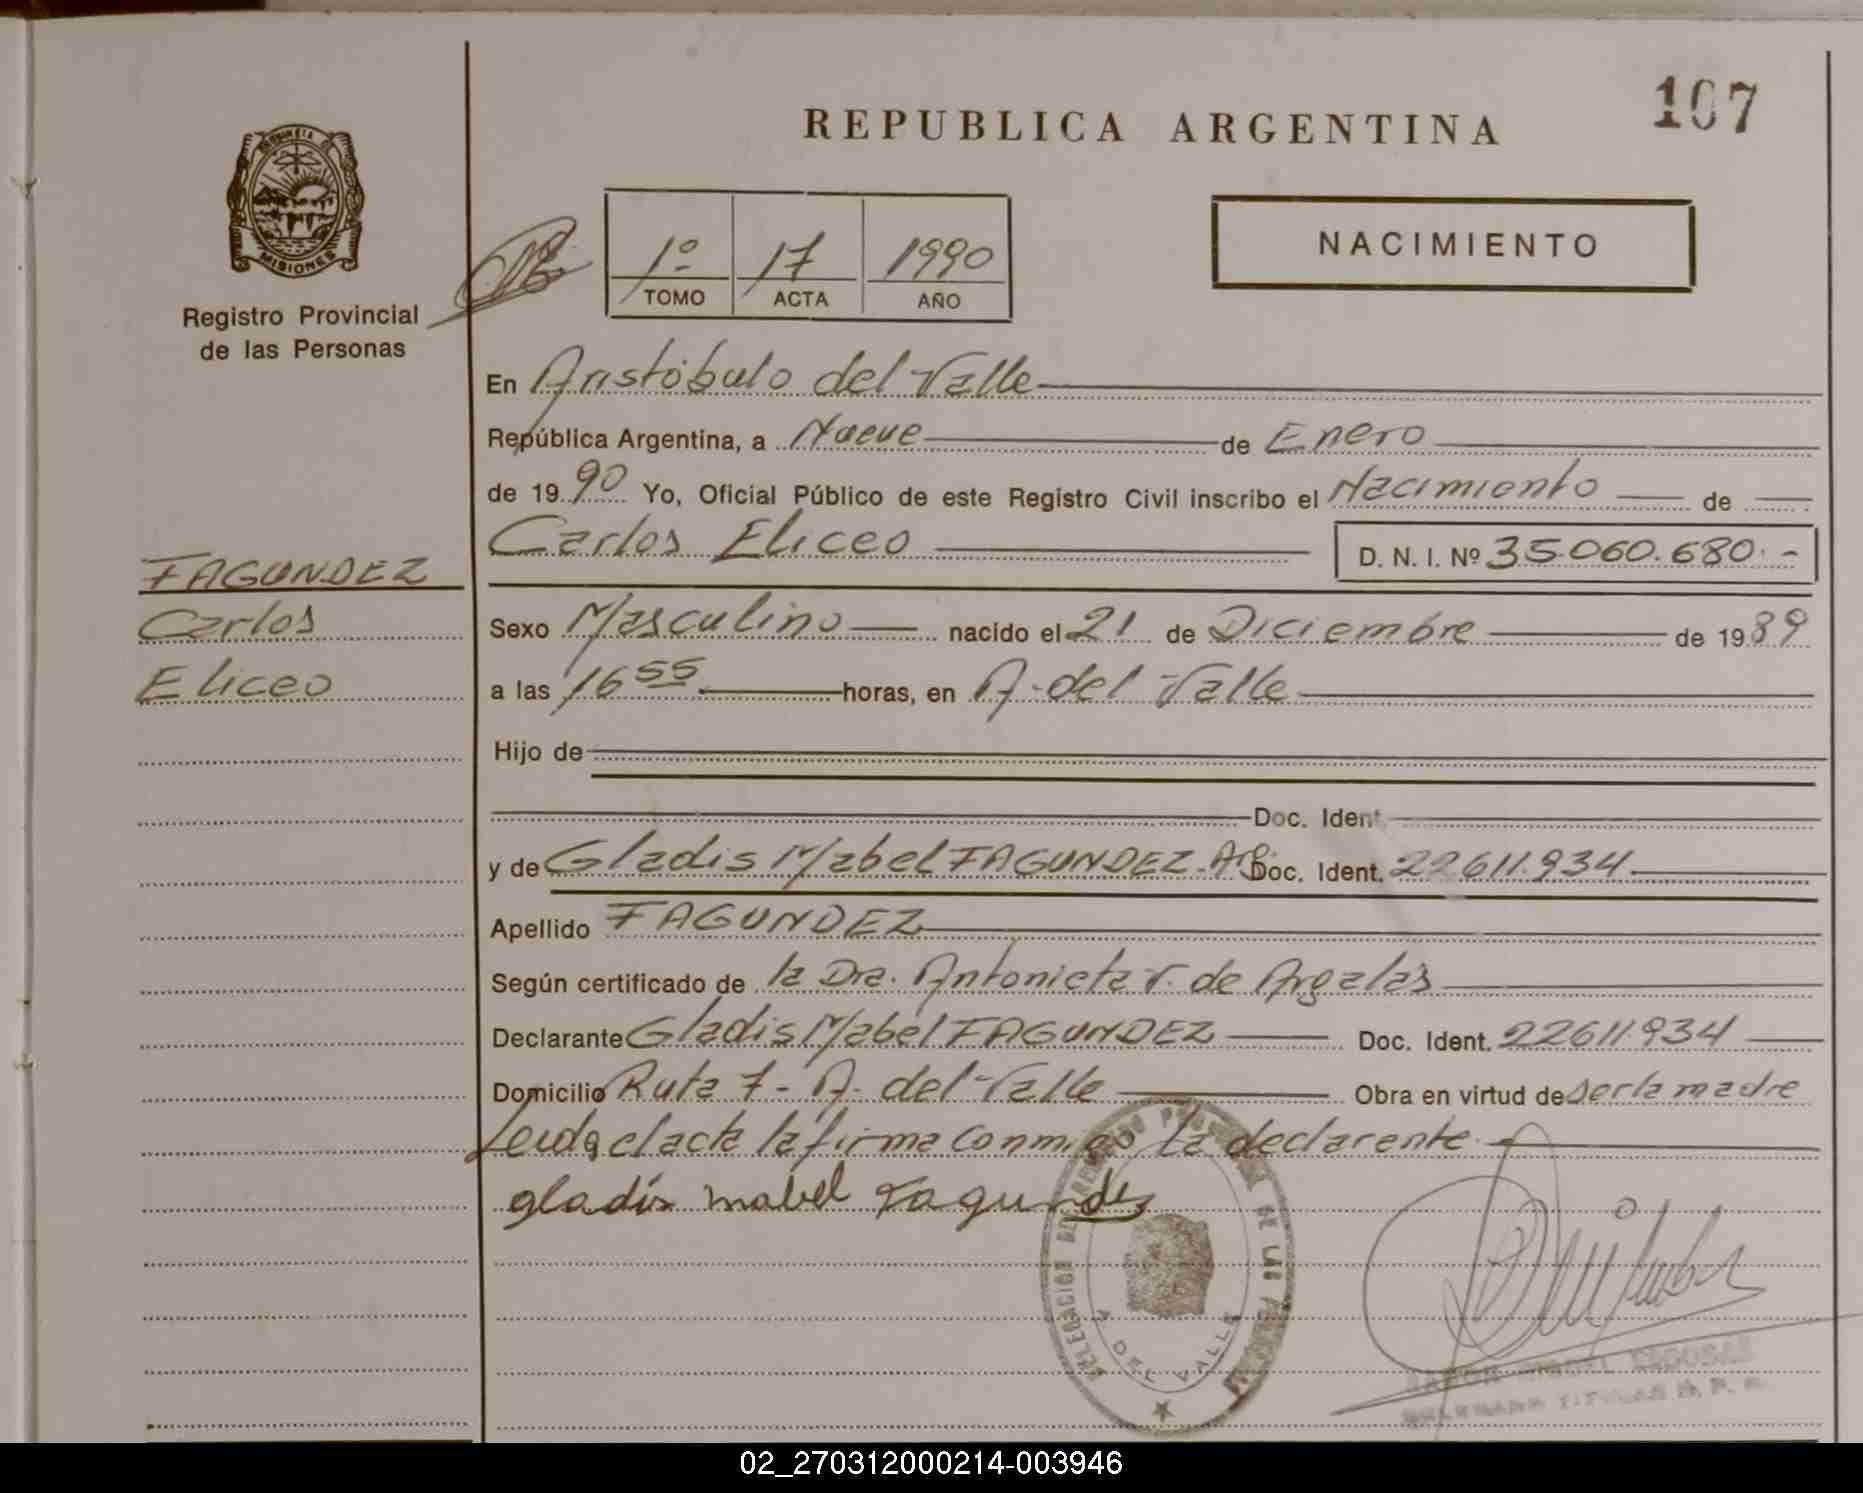 107
REPUBLICA ARGENTINA
NACIMIENTO
1º 17 1990
TOMO ACTA AÑO
MISIONES
Registro Provincial
de las Personas
En Aristóbulo del Valle
República Argentina, a Nueve de Enero
de 1990 Yo, Oficial Público de este Registro Civil inscribo el Nacimiento de
Carlos Eliceo D. N. I. Nº 35.060.680.-
FAGUNDEZ
Carlos
Eliceo
Sexo Masculino nacido el 21 de Diciembre de 1989
a las 16 55 horas, en A. del Valle
Hijo de
Doc. Ident.
y de Gladis Mabel FAGUNDEZ-Arg. Doc. Ident. 22611.934
Apellido FAGUNDEZ
Según certificado de la Dra. Antonieta V. de
Declarante Gladis Mabel FAGUNDEZ Doc. Ident. 22611.934
Domicilio Ruta 7- A. del Valle Obra en virtud de ser la madre
Leida el acta la firma conmigo la declarante
gladis mabel Fagundez
DELEGACION DEL REGISTRO PROVINCIAL DE LAS PERSONAS
A. DEL VALLE
02_270312000214-003946